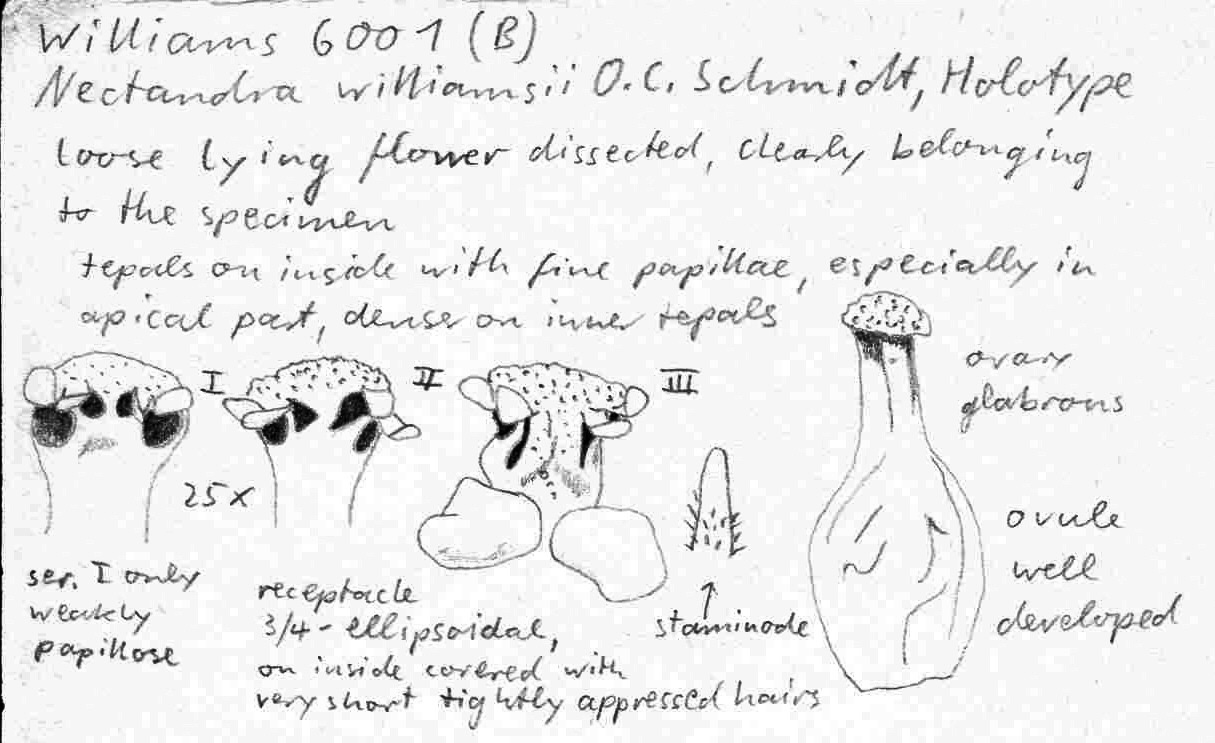 Williams 6001 (B)
Nectandra williamsii O.C. Schmidt, Holotype
loose lying flower dissected, clearly belonging
to the specimen
tepals on inside with fine papillae, especially in
apical part, dense on inner tepals
I
II
III
ovary
glabrous
25x
ovule
well
developed
ser. I only
weakly
papillose
receptacle
3/4-ellipsoidal,
on inside covered with
very short tightly appressed hairs
staminode